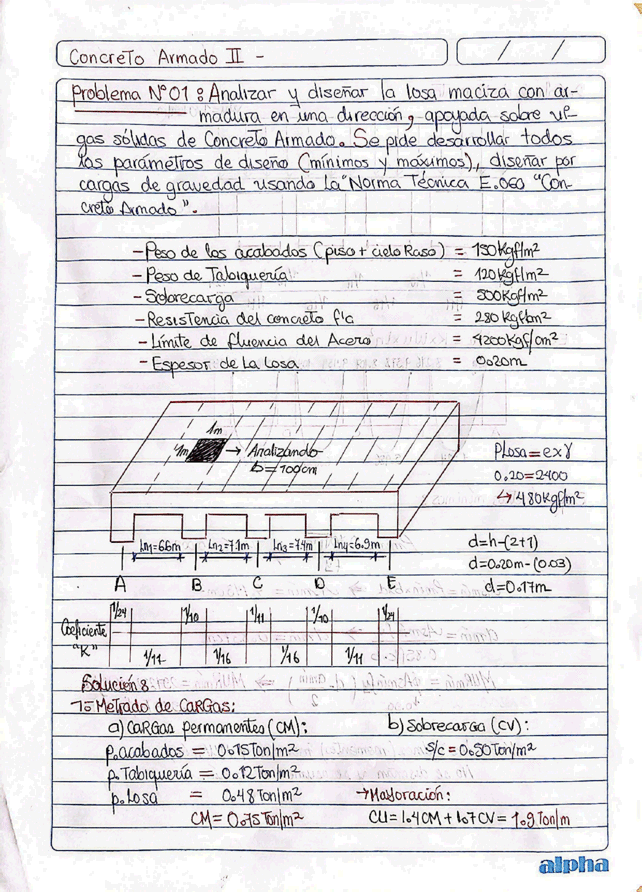 Concreto Armado II -
/ /
Problema N°01: Analizar y diseñar la losa maciza con ar-
madura en una dirección, apoyada sobre vi-
gas sólidas de Concreto Armado. Se pide desarrollar todos
los parámetros de diseño (mínimos y máximos), diseñar por
cargas de gravedad usando la "Norma Técnica E.060 "Con-
creto Armado".
- Peso de los acabados (piso + cielo Raso) = 150 Kgf/m²
- Peso de Tabiquería = 120 Kgf/m²
- Sobrecarga = 500 Kgf/m²
- Resistencia del concreto f'c = 280 Kgf/cm²
- Límite de fluencia del Acero = 4200 Kgf/cm²
- Espesor de La Losa = 0.20m
1m
1m → Analizando
b = 100cm
PLosa = e x γ
0.20 = 2400
↳ 480 Kgf/m²
Ln1=6.6m Ln2=7.1m Ln3=7.4m Ln4=6.9m
A B C D E
d=h-(2+1)
d=0.20m-(0.03)
d=0.17m
1/24 1/10 1/11 1/10 1/24
Coeficiente
"K"
1/11 1/16 1/16 1/11
Solución:
1= Metrado de CaRGas:
a) CaRGas permanentes (CM): b) Sobrecarga (CV):
p.acabados = 0.15 Ton/m² s/c = 0.50 Ton/m²
p.Tabiquería = 0.12 Ton/m²
p.Losa = 0.48 Ton/m² → Mayoración:
CM = 0.75 Ton/m² CU = 1.4 CM + 1.7 CV = 1.9 Ton/m
alpha